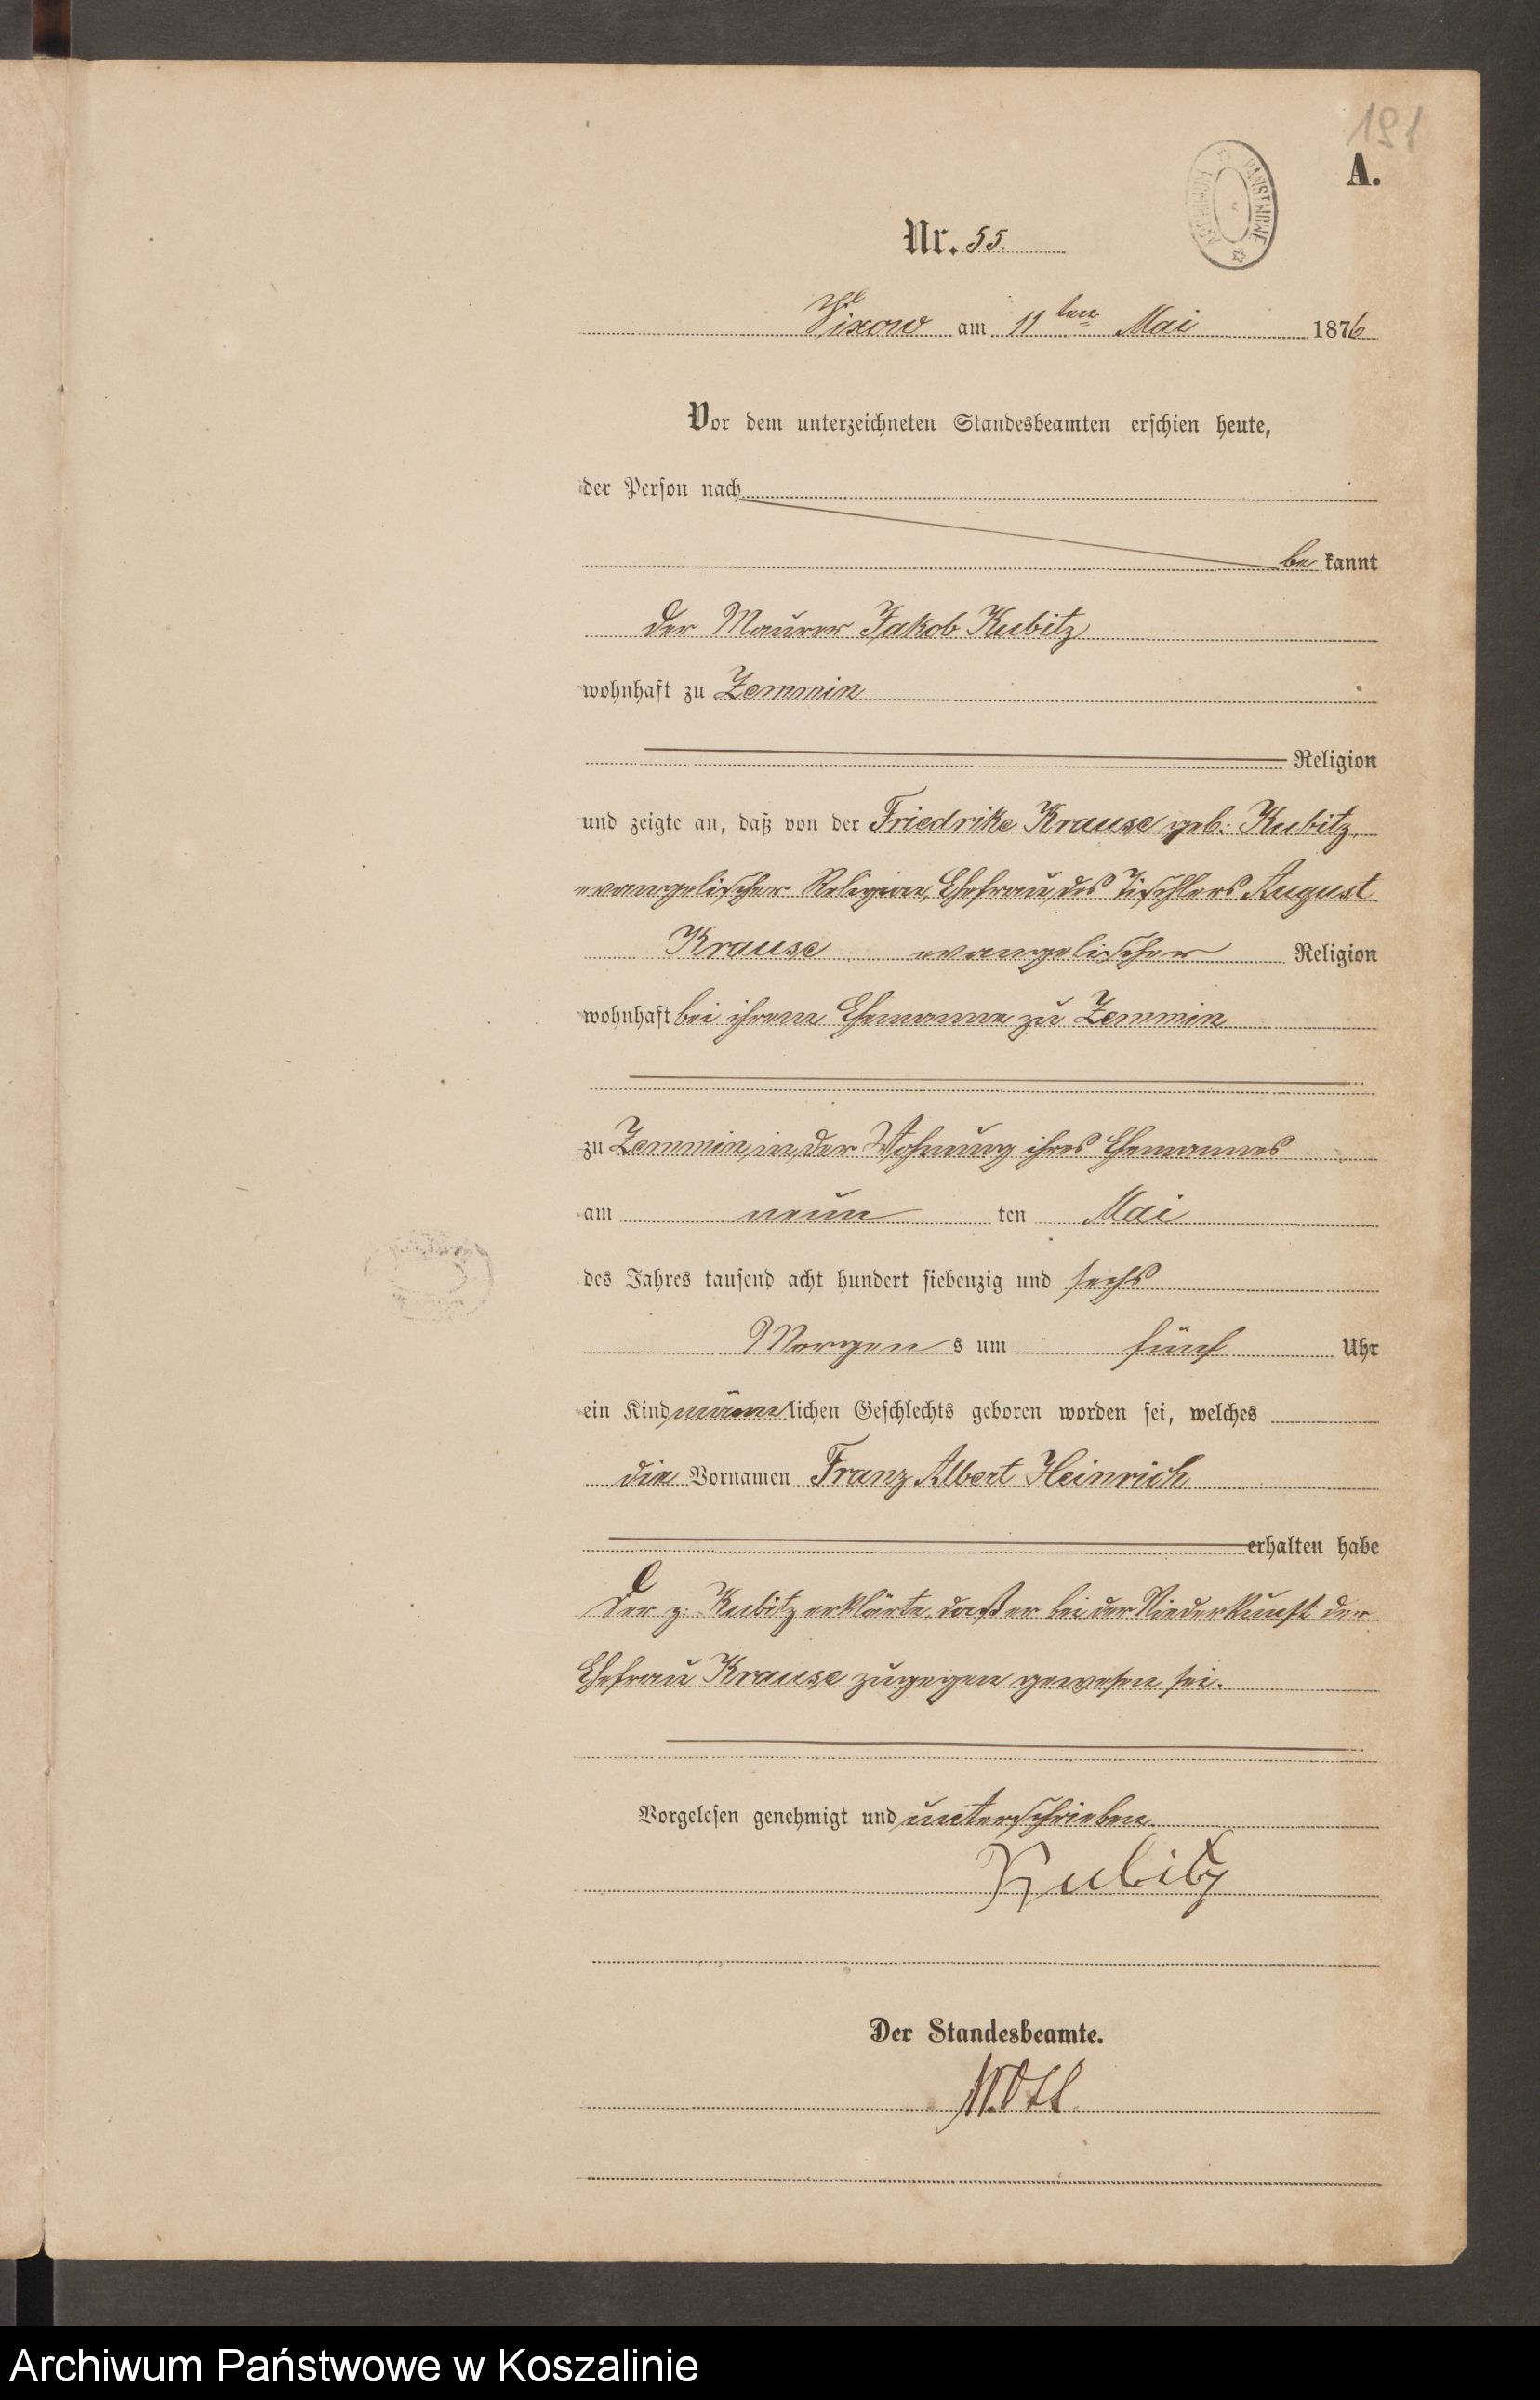 191
A.
ARCHIWUM PAŃSTWOWE
Nr. 55.
Vixow am 11ten Mai 1876
Vor dem unterzeichneten Standesbeamten erschien heute,
der Person nach
be kannt
der Maurer Jakob Kubitz
wohnhaft zu Zemmin
Religion
und zeigte an, daß von der Friedrike Krause geb. Kubitz,
evangelischer Religion, Ehefrau des Tischlers August
Krause evangelischer Religion
wohnhaft bei ihrem Ehemanne zu Zemmin
zu Zemmin, in der Wohnung ihres Ehemannes
am neun ten Mai
des Jahres tausend acht hundert siebenzig und sechs
Morgen s um fünf Uhr
ein Kind männ lichen Geschlechts geboren worden sei, welches
die Vornamen Franz Albert Heinrich
erhalten habe
Der p. Kubitz erklärte, daß er bei der Niederkunft der
Ehefrau Krause zugegen gewesen sei.
Vorgelesen genehmigt und unterschrieben
Kubitz
Der Standesbeamte.
Archiwum Państwowe w Koszalinie